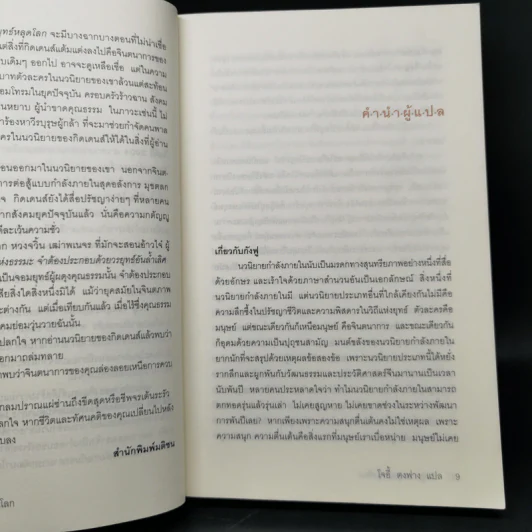 ยุทธ์หลุดโลก จะมีบางฉากบางตอนที่ไม่น่าเชื่อ
แต่สิ่งที่กิดเดนส์แต้มแต่งลงไปคือจินตนาการของ
บเดิมๆ ออกไป อาจจะดูเหลือเชื่อ แต่ในความ
บาทตัวละครในนวนิยายของเขาล้วนแต่สะท้อน
อมโทรมในยุคปัจจุบัน ครอบครัวร้าวฉาน สังคม
นหยาบ ผู้นำขาดคุณธรรม ในภาวะเช่นนี้ ไม่
าร้องหาวีรบุรุษผู้กล้า ที่จะมาช่วยกำจัดคนพาล
ครในนวนิยายของกิดเดนส์ให้ได้ในสิ่งที่ผู้อ่าน
อนออกมาในนวนิยายของเขา นอกจากจินต-
การต่อสู้แบบกำลังภายในสุดอลังการ มุขตลก
ก กิดเดนส์ยังได้สื่อปรัชญาง่ายๆ ที่หลายคน
ากสังคมยุคปัจจุบันแล้ว นั่นคือความกตัญญู
ดีละเว้นความชั่ว
ก หวงจวิ้น เฒ่าพเนจร ที่มักจะสอนอ้าวไจ้ ผู้
ห่งธรรมะ จำต้องประกอบด้วยวรยุทธ์อันล้ำเลิศ
เป็นจอมยุทธ์ผู้ผดุงคุณธรรมนั้น จำต้องประกอบ
สียสิ่งใดสิ่งหนึ่งมิได้ แม้ว่ายุคสมัยในจินตภาพ
ะต่างกัน แต่เมื่อเทียบกันแล้ว เมื่อไร้ซึ่งคุณธรรม
คมย่อมวุ่นวายฉันนั้น
ปลกใจ หากอ่านนวนิยายของกิดเดนส์แล้วพบว่า
อกมาถล่มทลาย
าพบว่าจินตนาการของคุณล่องลอยเหนือการควบ
กลมปราณแผ่ซ่านถึงขีดสุดหรือชีพจรเต้นระรัว
ลกใจ หากชีวิตและทัศนคติของคุณเปลี่ยนไปหลัง
บลง
สำนักพิมพ์มติชน
โลก
คำนำผู้แปล
เกี่ยวกับกังฟู
นวนิยายกำลังภายในนับเป็นมรดกทางสุนทรียภาพอย่างหนึ่งที่สื่อ
ด้วยอักษร และเร้าใจด้วยภาษาสำนวนอันเป็นเอกลักษณ์ สิ่งหนึ่งที่
นวนิยายกำลังภายในมี แต่นวนิยายประเภทอื่นที่ใกล้เคียงกันไม่มีคือ
ความลึกซึ้งในปรัชญาชีวิตและความพิสดารในวิถีแห่งยุทธ์ ตัวละครคือ
มนุษย์ แต่ขณะเดียวกันก็เหนือมนุษย์ คือจินตนาการ และขณะเดียวกัน
ก็อุดมด้วยความเป็นปุถุชนสามัญ มนต์ขลังของนวนิยายกำลังภายใน
ยากนักที่จะสรุปด้วยเหตุผลข้อสองข้อ เพราะนวนิยายประเภทนี้ได้หยั่ง
รากลึกและผูกพันกับวัฒนธรรมและประวัติศาสตร์จีนมานานเป็นเวลา
นับพันปี หลายคนประหลาดใจว่า ทำไมนวนิยายกำลังภายในสามารถ
ตกทอดรุ่นแล้วรุ่นเล่า ไม่เคยสูญหาย ไม่เคยขาดช่วงในระหว่างพัฒนา
การพันปีเลย? หากเพียงเพราะความสนุกตื่นเต้นคงไม่ใช่เหตุผล เพราะ
ความสนุก ความตื่นเต้นคือสิ่งแรกที่มนุษย์เราเบื่อหน่าย มนุษย์ไม่เคย
โจอี้ ตงฟาง แปล 9